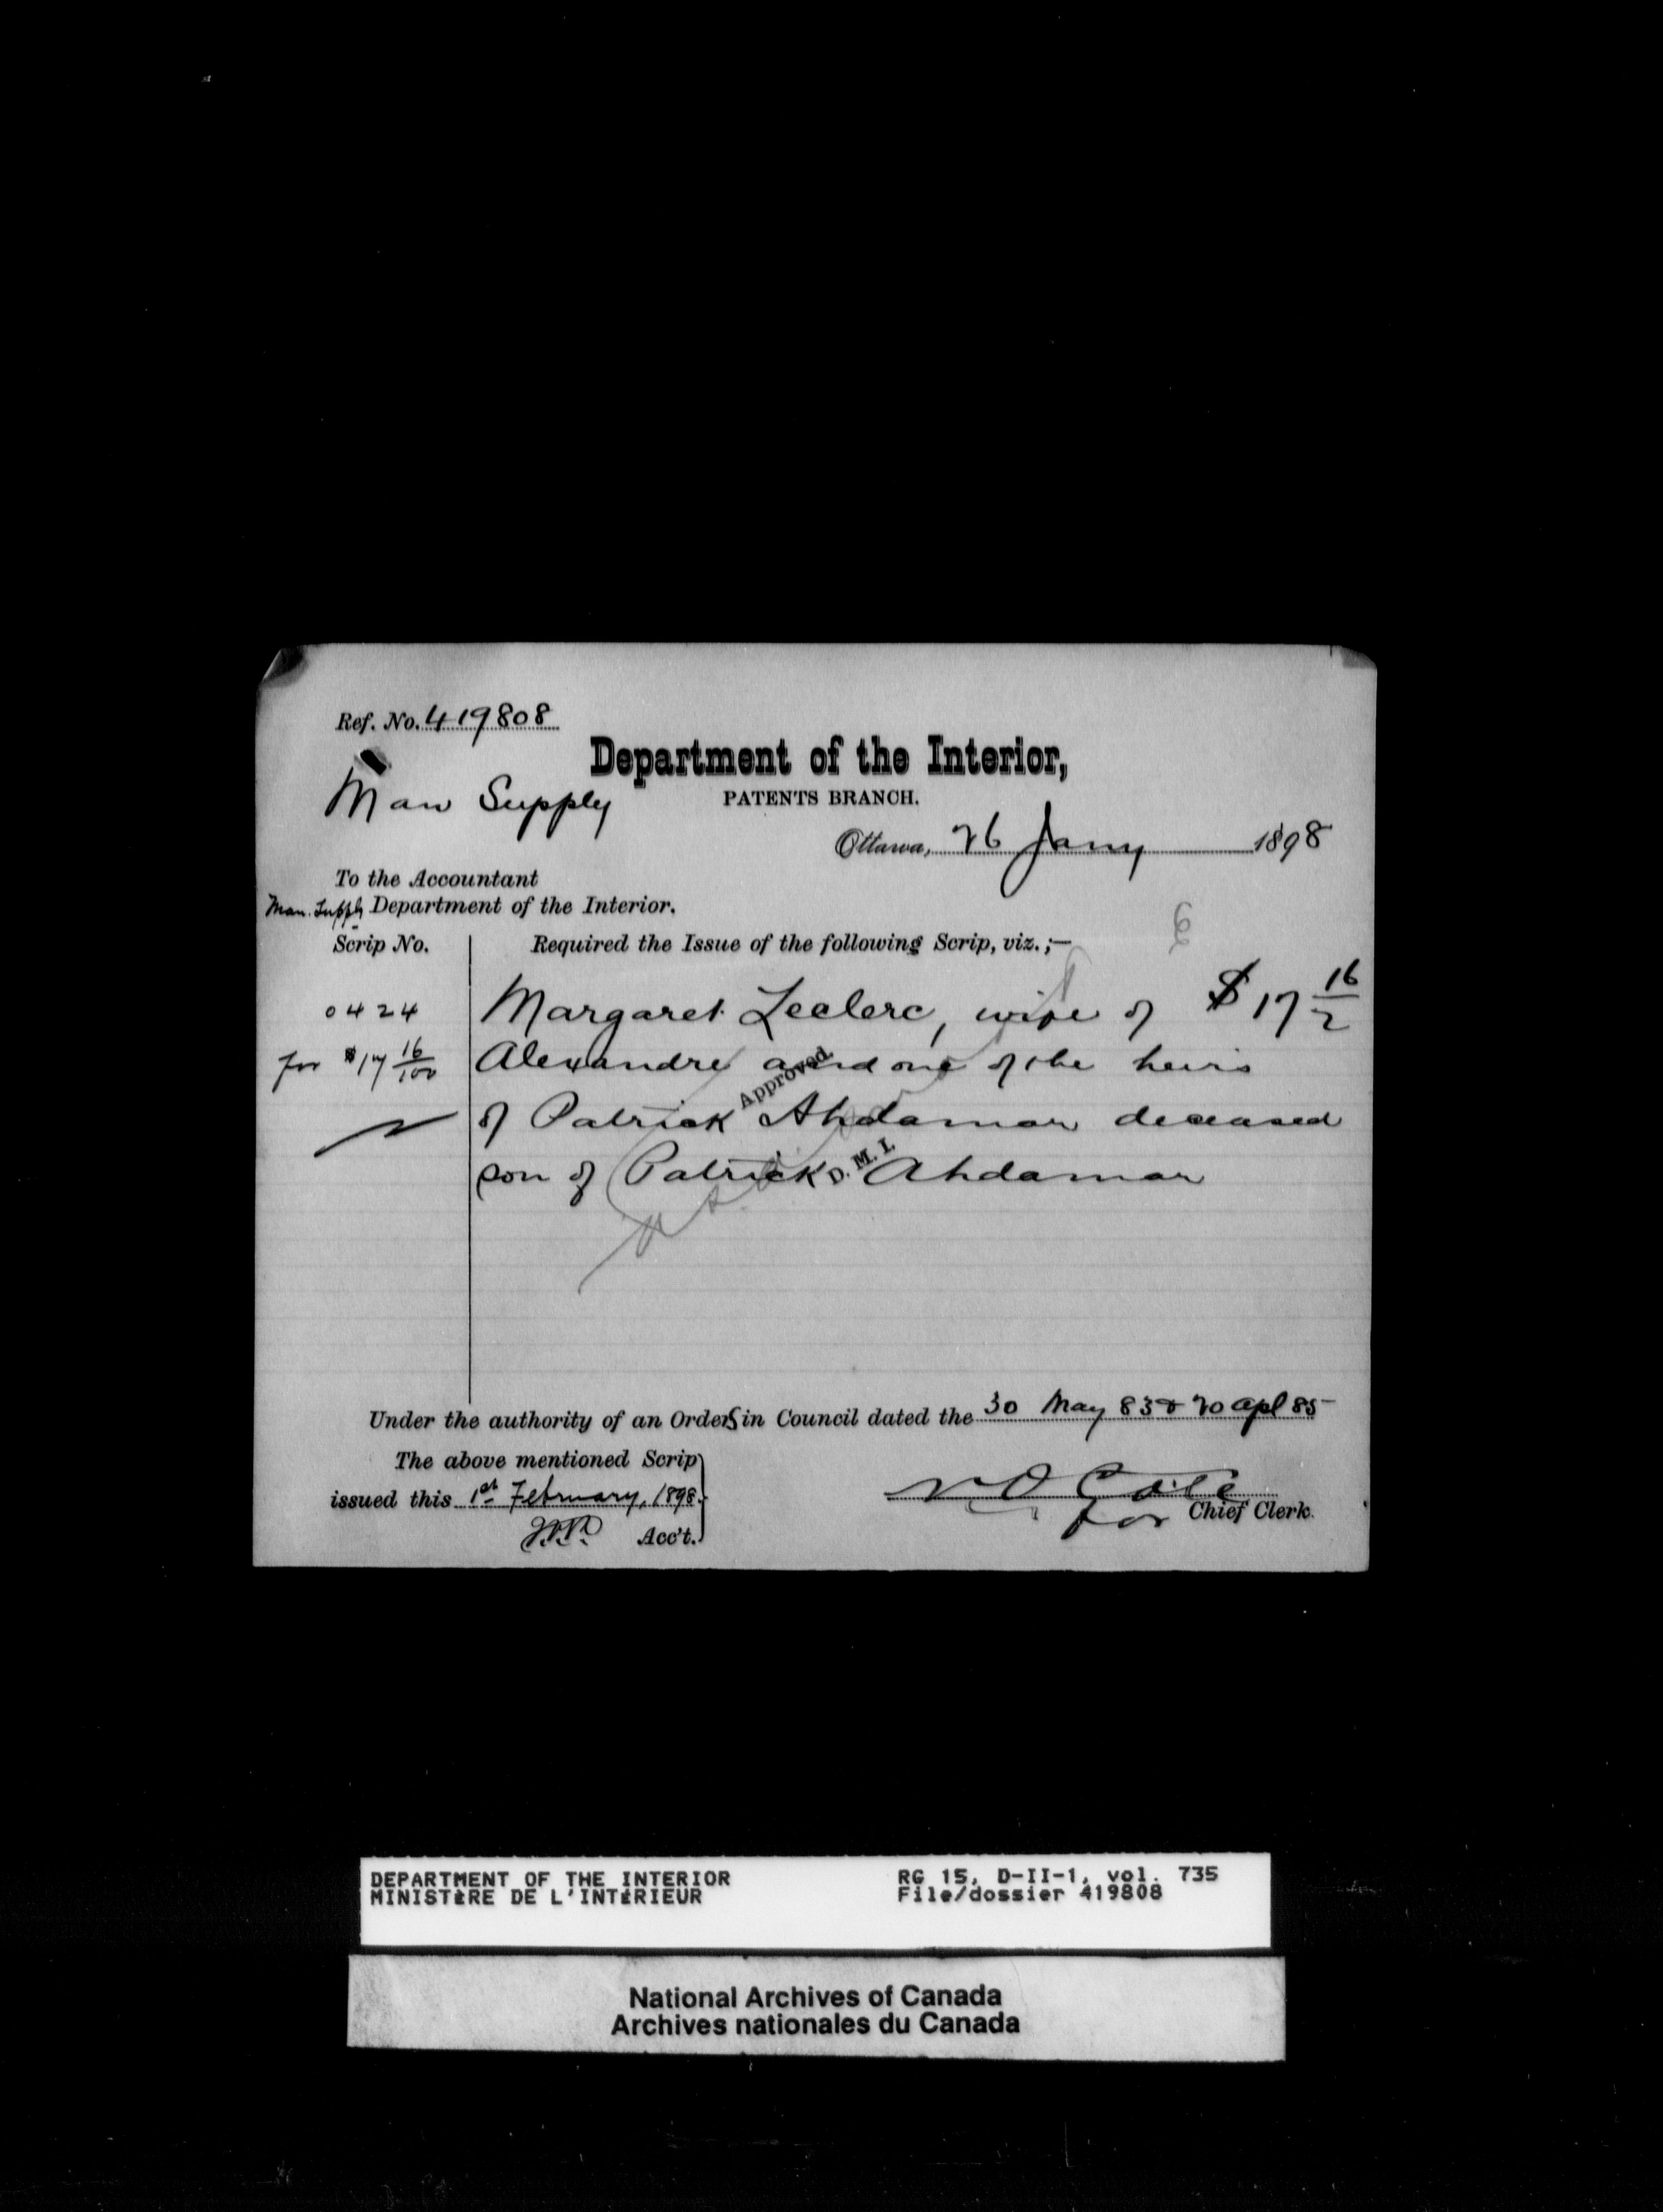 Ref. No. 419808
Department of the Interior,
Man Supply
PATENTS BRANCH.
Ottawa, 26 Jany 1898
To the Accountant
Man. Supply Department of the Interior.
Scrip No. Required the Issue of the following Scrip, viz.;—
0424 Margaret Leclerc, wife of $17 16/
for $17 16/100 Alexandre and one of the heirs
Approved
of Patrick Ahdamar deceased
D. M. I.
son of Patrick Ahdamar
Under the authority of an Orders in Council dated the 30 May 83 & 20 Apl 85
The above mentioned Scrip
issued this 1st February, 1898.
for Chief Clerk.
Acc't.
DEPARTMENT OF THE INTERIOR RG 15, D-II-1, vol. 735
MINISTÈRE DE L'INTÉRIEUR File/dossier 419808
National Archives of Canada
Archives nationales du Canada